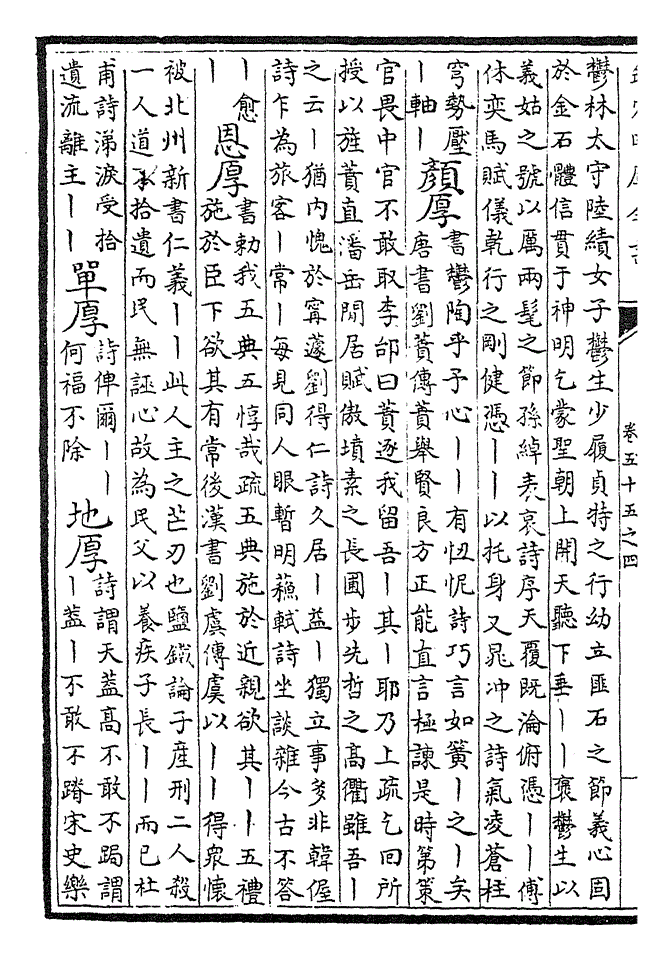 欽定四庫全書
卷五十五之四
鬱林太守陸績女子鬱生少履貞特之行幼立匪石之節義心固
於金石體信貫于神明乞蒙聖朝上開天聽下垂丨丨褒鬱生以
義姑之號以厲兩髦之節孫綽表哀詩序天覆既淪俯憑丨丨傅
休奕馬賦儀乾行之剛健憑丨丨以托身又晁冲之詩氣凌蒼柱
穹勢壓
丨軸丨
顏厚
書鬱陶乎予心丨丨有忸怩詩巧言如簧丨之丨矣
唐書劉蕡傳蕡舉賢良方正能直言極諫是時第策
官畏中官不敢取李郃曰蕡逐我留吾丨其丨耶乃上疏乞回所
授以旌蕡直潘岳閒居賦傲墳素之長圃步先哲之高衢雖吾丨
之云丨猶内愧於寗蘧劉得仁詩久居丨益丨獨立事多非韓偓
詩乍為旅客丨常丨每見同人眼暫明蘇軾詩坐談雜今古不答
丨愈
丨
恩厚
書勅我五典五惇哉疏五典施於近親欲其丨丨五禮
施於臣下欲其有常後漢書劉虞傳虞以丨丨得衆懷
被北州新書仁義丨丨此人主之芒刃也鹽鐵論子產刑二人殺
一人道不拾遺而民無誣心故為民父以養疾子長丨丨而已杜
甫詩涕淚受拾
遺流離主丨丨
單厚
詩俾爾丨丨
何福不除
地厚
詩謂天蓋高不敢不跼謂
丨蓋丨不敢不蹐宋史樂